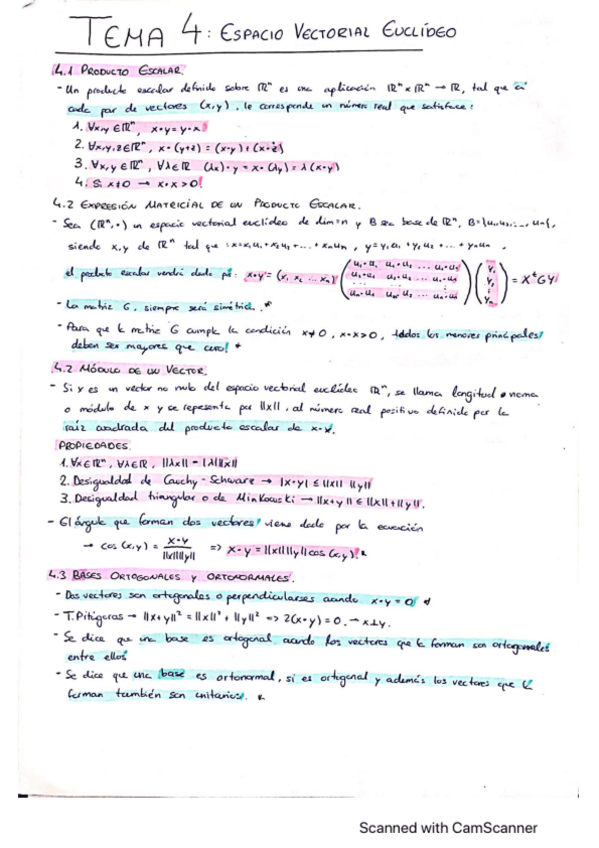 TEMA 4: ESPACIO VECTORIAL EUCLÍDEO
4.1 PRODUCTO ESCALAR.
- Un producto escalar definido sobre ℝⁿ es una aplicación ℝⁿ x ℝⁿ → ℝ, tal que a
cada par de vectores (x,y), le corresponde un número real que satisface:
1. ∀x,y ∈ ℝⁿ, x·y = y·x
2. ∀x,y,z ∈ ℝⁿ, x·(y+z) = (x·y) + (x·z)
3. ∀x,y ∈ ℝⁿ, ∀λ ∈ ℝ (λx)·y = x·(λy) = λ(x·y)
4. Si x≠0 → x·x > 0
4.2 EXPRESIÓN MATRICIAL DE UN PRODUCTO ESCALAR.
- Sea (ℝⁿ,·) un espacio vectorial euclídeo de dim=n y B sea base de ℝⁿ, B={u₁,u₂,...,uₙ},
siendo x,y de ℝⁿ tal que: x=x₁u₁+x₂u₂+...+xₙuₙ, y=y₁u₁+y₂u₂+...+yₙuₙ,
el producto escalar vendrá dado por: x·y = (x₁ x₂ ... xₙ) (u₁·u₁ u₁·u₂ ... u₁·uₙ
u₂·u₁ u₂·u₂ ... u₂·uₙ
uₙ·u₁ uₙ·u₂ ... uₙ·uₙ) (y₁ y₂ ⋮ yₙ) = XᵗGY
- La matriz G, siempre será simétrica. *
- Para que la matriz G cumpla la condición x≠0, x·x>0, todos los menores principales
deben ser mayores que cero! *
4.2 MÓDULO DE UN VECTOR.
- Si x es un vector no nulo del espacio vectorial euclídeo ℝⁿ, se llama longitud o norma
o módulo de x y se representa por ||x||, al número real positivo definido por la
raíz cuadrada del producto escalar de x·x.
PROPIEDADES.
1. ∀x∈ℝⁿ, ∀λ∈ℝ, ||λx|| = |λ|||x||
2. Desigualdad de Cauchy-Schware → |x·y| ≤ ||x|| ||y||
3. Desigualdad triangular o de Minkowski → ||x+y|| ≤ ||x||+||y||.
- El ángulo que forman dos vectores viene dado por la ecuación
→ cos(x,y) = x·y / ||x||||y|| => x·y = ||x||||y||cos(x,y)!
4.3 BASES ORTOGONALES Y ORTONORMALES.
- Dos vectores son ortogonales o perpendiculares cuando x·y = 0
- T. Pitágoras → ||x+y||² = ||x||² + ||y||² => 2(x·y) = 0. → x⊥y.
- Se dice que una base es ortogonal cuando los vectores que la forman son ortogonales
entre ellos
- Se dice que una base es ortonormal, si es ortogonal y además los vectores que la
forman también son unitarios.
Scanned with CamScanner